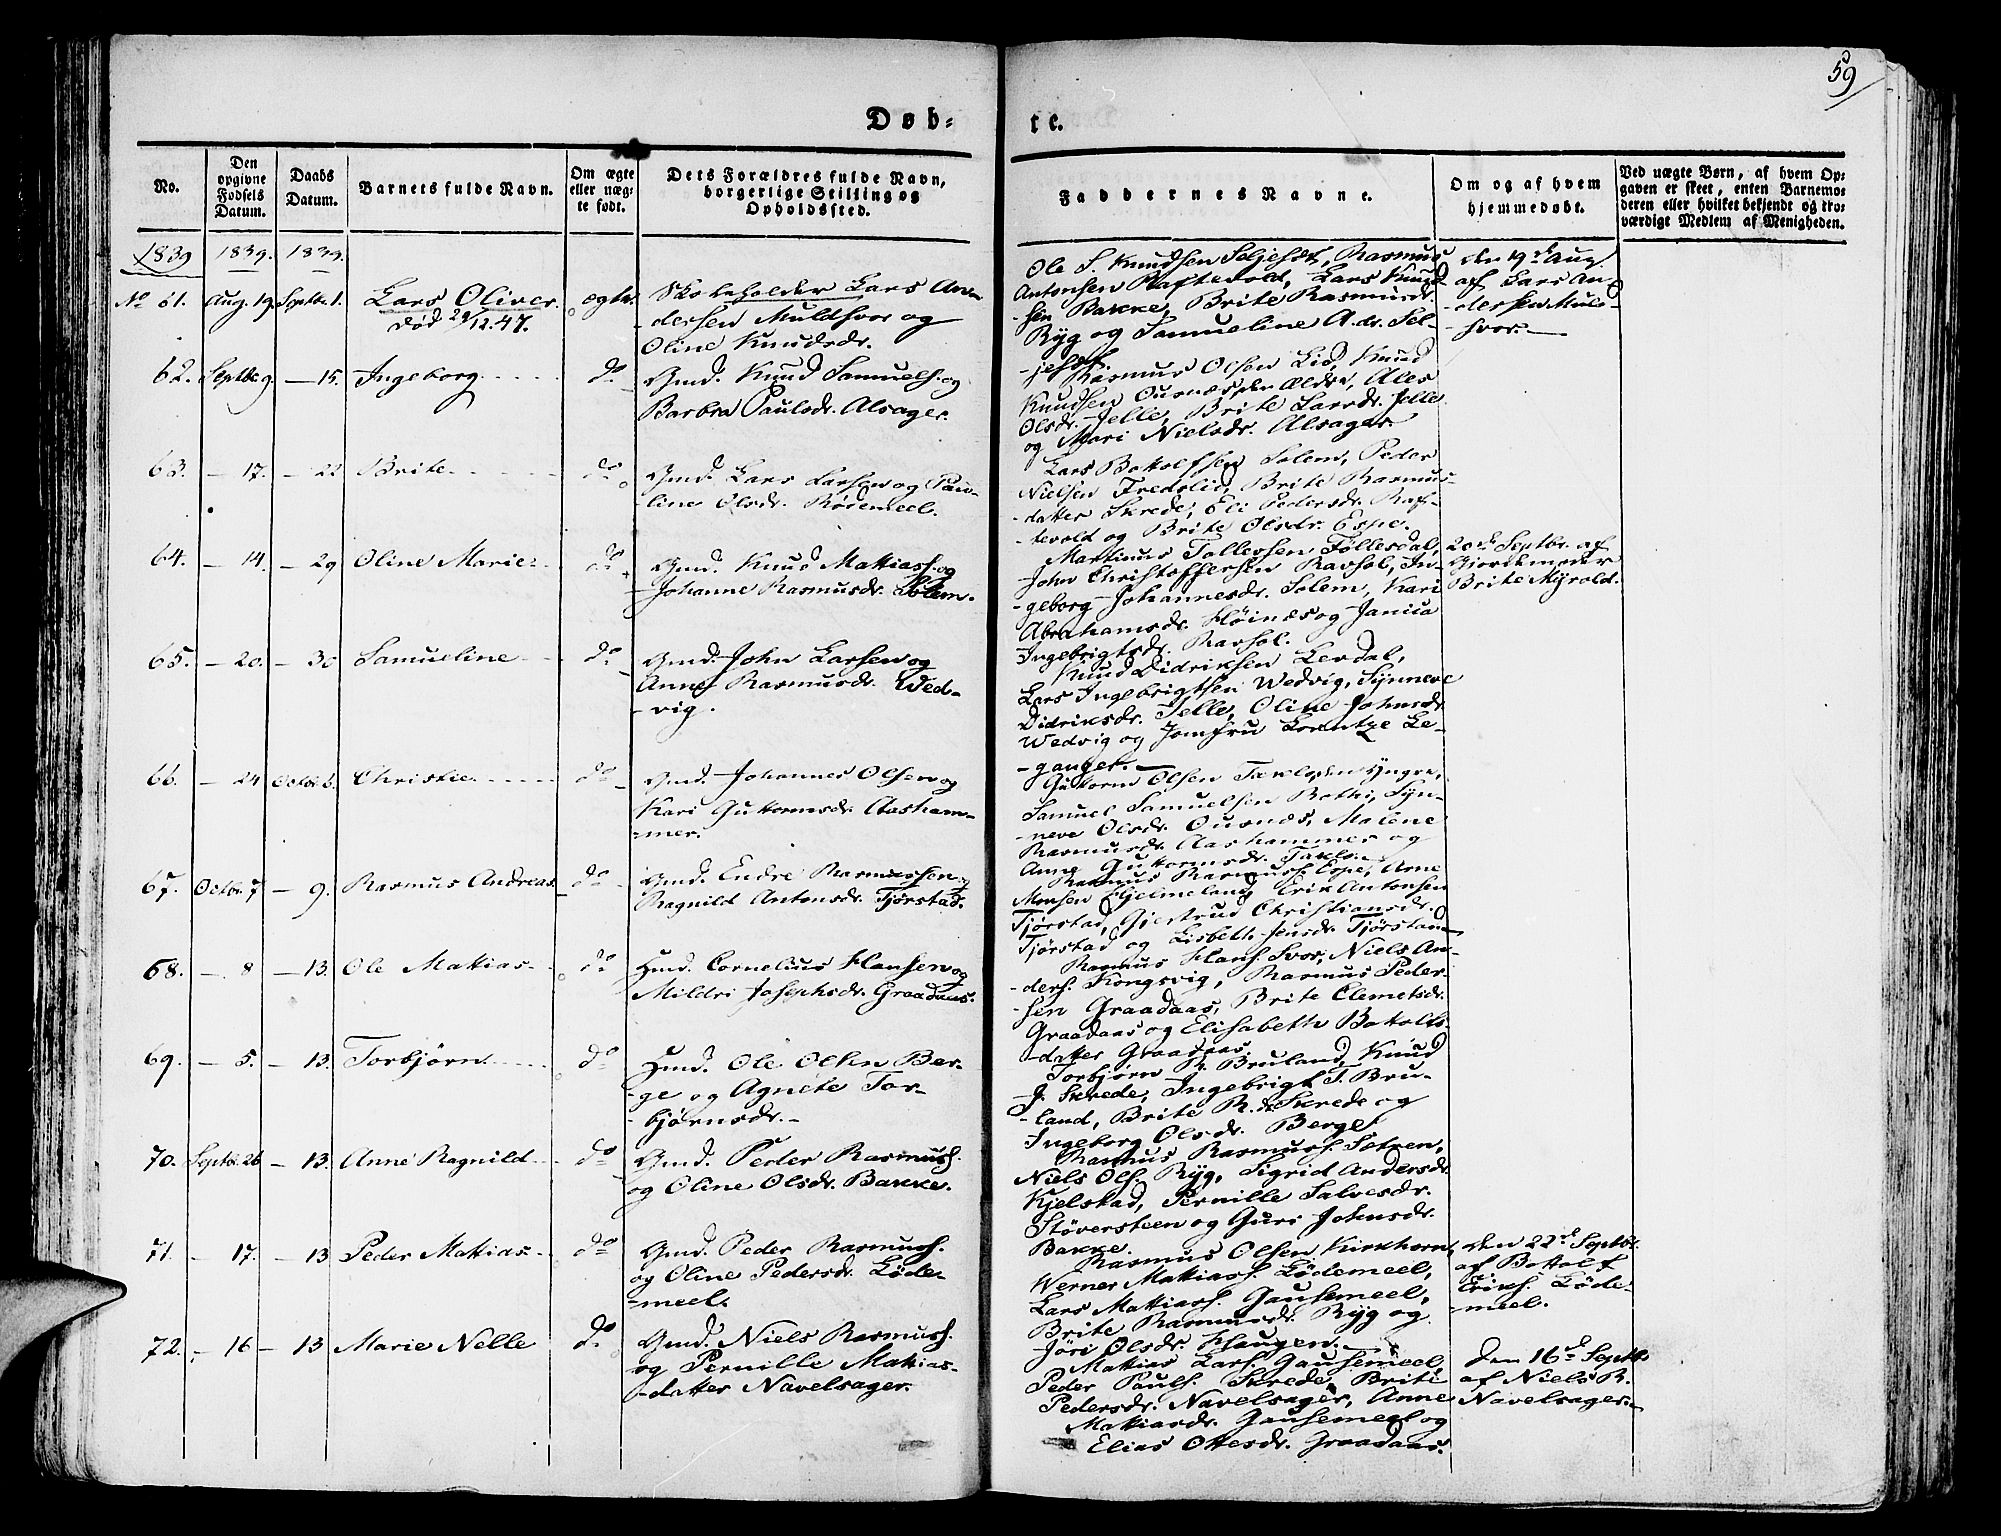 59
Døb-
te.
No.
Den opgivne Fødsels Datum.
Daabs Datum.
Barnets fulde Navn.
Om ægte eller uæg-te født.
Dets Forældres fulde Navn, borgerlige Stilling og Opholdssted.
Faddernes Navne.
Om og af hvem hjemmedøbt.
Ved uægte Børn, af hvem Op-
gaven er skeet, enten Barnemo-
deren eller hvilket bekjendt og tro-
værdigt Medlem af Menigheden.
1839 1839. 1839.
No 61. Aug. 19. Septbr. 1. Lars Oliver ægte.
død 29/12.47.
Skoleholder Lars An-
dersen Muldsvor og
Oline Knudsdr.
Ole S. Knudsen Seljesæt, Rasmus
Antonsen Raftevold, Lars Knud-
sen Bakke, Brite Rasmusdr.
Ryg og Samueline A.dr. Sel-
-jesæt.
den 19de Aug.
af Lars An-
dersen Muld-
svor.
62. Septbr. 9. — 15. Ingeborg do
Gmd. Knud Samuels. og
Barbra Paulsdr. Alsager.
Rasmus Olsen Lid, Knud
Knudsen Ousnæs den Ældre, Ales
Olsdr. Jelle, Brite Larsdr. Jelle
og Mari Nielsdr. Alsager.
63. — 17. — 22 Brite do
Gmd. Lars Larsen og Pau-
-line Olsdr. Rødemeel.
Lars Bottolfsen Solem, Peder
Nielsen Fredslid, Brite Rasmus-
-datter Skrede, Eli Pedersdr. Raf-
tevold og Brite Olsdr. Espe.
64. — 14. — 29 Oline Marie do
Gmd. Knud Mathiass. og
Johanne Rasmusdr. Solem.
Mathinus Tollessen Føllesdal,
John Christoffersen Ravsol, In-
-geborg Johannesdr. Solem, Kari
Abrahamsdr. Høinæs og Janica
Ingebrigtsdr. Ravsol.
20de Septbr. af
Gjordemoder
Brite Myrold.
65. — 20. — 30 Samueline do
Gmd. John Larsen og
Anne Rasmusdr. Wed-
-vig.
Knud Didriksen Levdal,
Lars Ingebrigtsen Wedvig, Synneve
Didriksdr. Jelle, Oline Johnsdr.
Wedvig og Jomfru Lorntze Le-
-ganger.
66. — 24 Octobr. 6. Christie do
Gmd. Johannes Olsen og
Kari Guttormsdr. Aasham-
-mer.
Guttorm Olsen Taklo den Yngre,
Samuel Samuelsen Bothi, Syn-
-neve Olsdr. Ousnæs, Malene
Rasmusdr. Aashammer og
Anne Guttormsdr. Taklo.
67. Octbr. 7 — 9. Rasmus Andreas do
Gmd. Endre Rasmussen og
Ragnild Antonsdr. Tjørstad.
Rasmus Rasmuss. Espe, Arne
Monsen Hjelmeland, Erik Antonsen
Tjørstad, Gjertrud Christiansdr.
Tjørstad og Lisbeth Jensdr. Tjørstad
68. — 8 — 13. Ole Mathias do
Hmd. Cornelius Hansen og
Mildri Josephsdr. Graadaas.
Rasmus Hans. Svor, Niels An-
-ders. Kongsvig, Rasmus Peder-
sen Graadaas, Brite Clemetsdr.
Graadaas og Elisabeth Bottolfs-
-datter Graadaas.
69. — 5. — 13. Torbjørn do
Hmd. Ole Olsen Ber-
-ge og Agnete Tor-
-bjørnsdr. —
Torbjørn R. Bruland, Knud
J. Skrede, Ingebrigt T. Bru-
-land, Brite R.dr. Skrede og
Ingeborg Olsdr. Berge
70. Septbr. 26 — 13. Anne Ragnild do
Gmd. Peder Rasmuss.
og Oline Olsdr. Bakke.
Rasmus Rasmuss. Sætren,
Niels Ols. Ryg, Sigrid Andersdr.
Kjelstad, Pernille Salvesdr.
Støversteen og Guri Johnsdr.
Bakke.
71. — 17. — 13 Peder Mathias do
Gmd. Peder Rasmuss.
og Oline Pedersdr. Løde-
-meel.
Rasmus Olsen Kirkhorn,
Werner Mathiass. Lødemeel,
Lars Mathiass. Gausemeel,
Brite Rasmusdr. Ryg og
Jøri Olsdr. Haugen.
Den 22de Septbr.
af Bottolf
Eriks. Løde-
-meel.
72. — 16 — 13 Marie Nelle do
Gmd. Niels Rasmuss.
og Pernille Mathias-
-datter Navelsager.
Mathias Lars. Gausemeel,
Peder Pauls. Skrede, Brite
Pedersdr. Navelsager, Anne
Mathiasdr. Gausemeel og
Elias Ottesdr. Graadaas.
Den 16de Septbr.
af Niels R.
Navelsager.